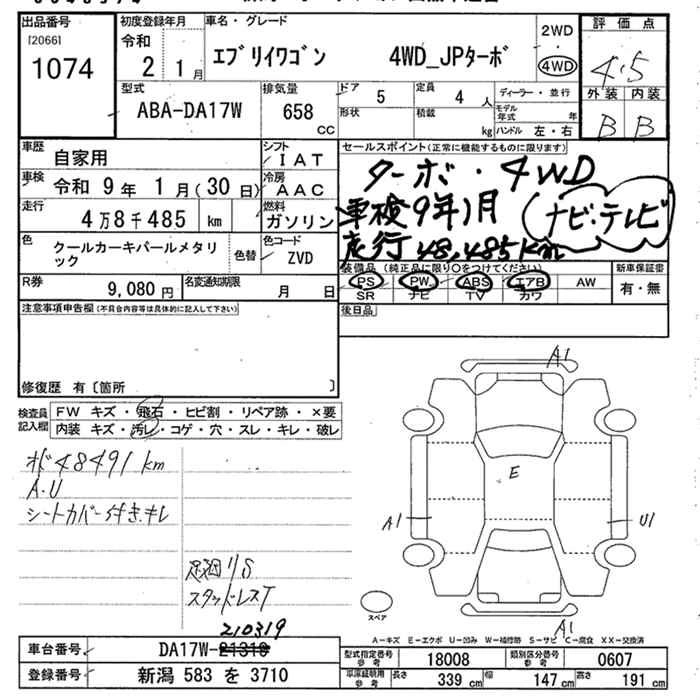 出品番号
[2066]
1074
初度登録年月
令和
2 1月
車名・グレード
エブリイワゴン 4WD_JPターボ
2WD
・
4WD
評価点
4.5
外装 内装
B B
型式
ABA-DA17W
排気量
658
CC
ドア 5
定員 4 人
形状
積載 kg
ディーラー・並行
モデル年式 年
ハンドル 左・右
車歴
自家用
車検 令和 9年 1月(30日)
走行 4万8千485 km
色 クールカーキパールメタリック
色替
シフト
IAT
冷房
AAC
燃料
ガソリン
色コード
ZVD
R券 9,080円
名変通知期限 月 日
セールスポイント(正常に機能するものに限ります)
ターボ・4WD
車検9年1月
走行48,485Km
ナビ・テレビ
装備品(純正品に限り○をつけてください)
PS PW ABS エアB AW
SR ナビ TV カワ
新車保証書
有・無
後日品
注意事項申告欄(不具合内容等は具体的に記入して下さい)
修復歴 有〔箇所 〕
検査員記入欄
FW キズ・飛石・ヒビ割・リペア跡・×要
内装 キズ・汚レ・コゲ・穴・スレ・キレ・破レ
48491km
A・U
シートカバー付き、キレ
1/S
スタッドレスT
A1
E
A1
U1
A1
スペア
A－キズ E－エクボ U－凹み W－補修跡 S－サビ C－腐食 XX－交換済
210319
車台番号 DA17W-21319
登録番号 新潟 583 を 3710
型式指定番号参考 18008
類別区分番号参考 0607
車庫証明用参考
長さ 339 cm
幅 147 cm
高さ 191 cm